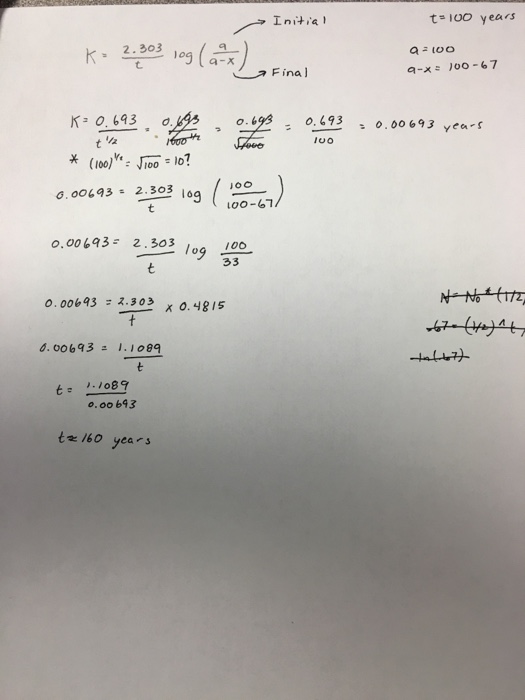 → Initial
t=100 years
K = 2.303/t log (a/a-x)
→ Final
a = 100
a-x = 100-67
K = 0.693/t^1/2 = 0.693/1000^1/2 = 0.693/√1000 = 0.693/100 = 0.00693 years
* (100)^1/2 = √100 = 10?
0.00693 = 2.303/t log (100/100-67)
0.00693 = 2.303/t log 100/33
0.00693 = 2.303/t x 0.4815
N = No * (1/2)
.67 = (1/2)^t
ln(.67)
0.00693 = 1.1089/t
t = 1.1089/0.00693
t ≈ 160 years